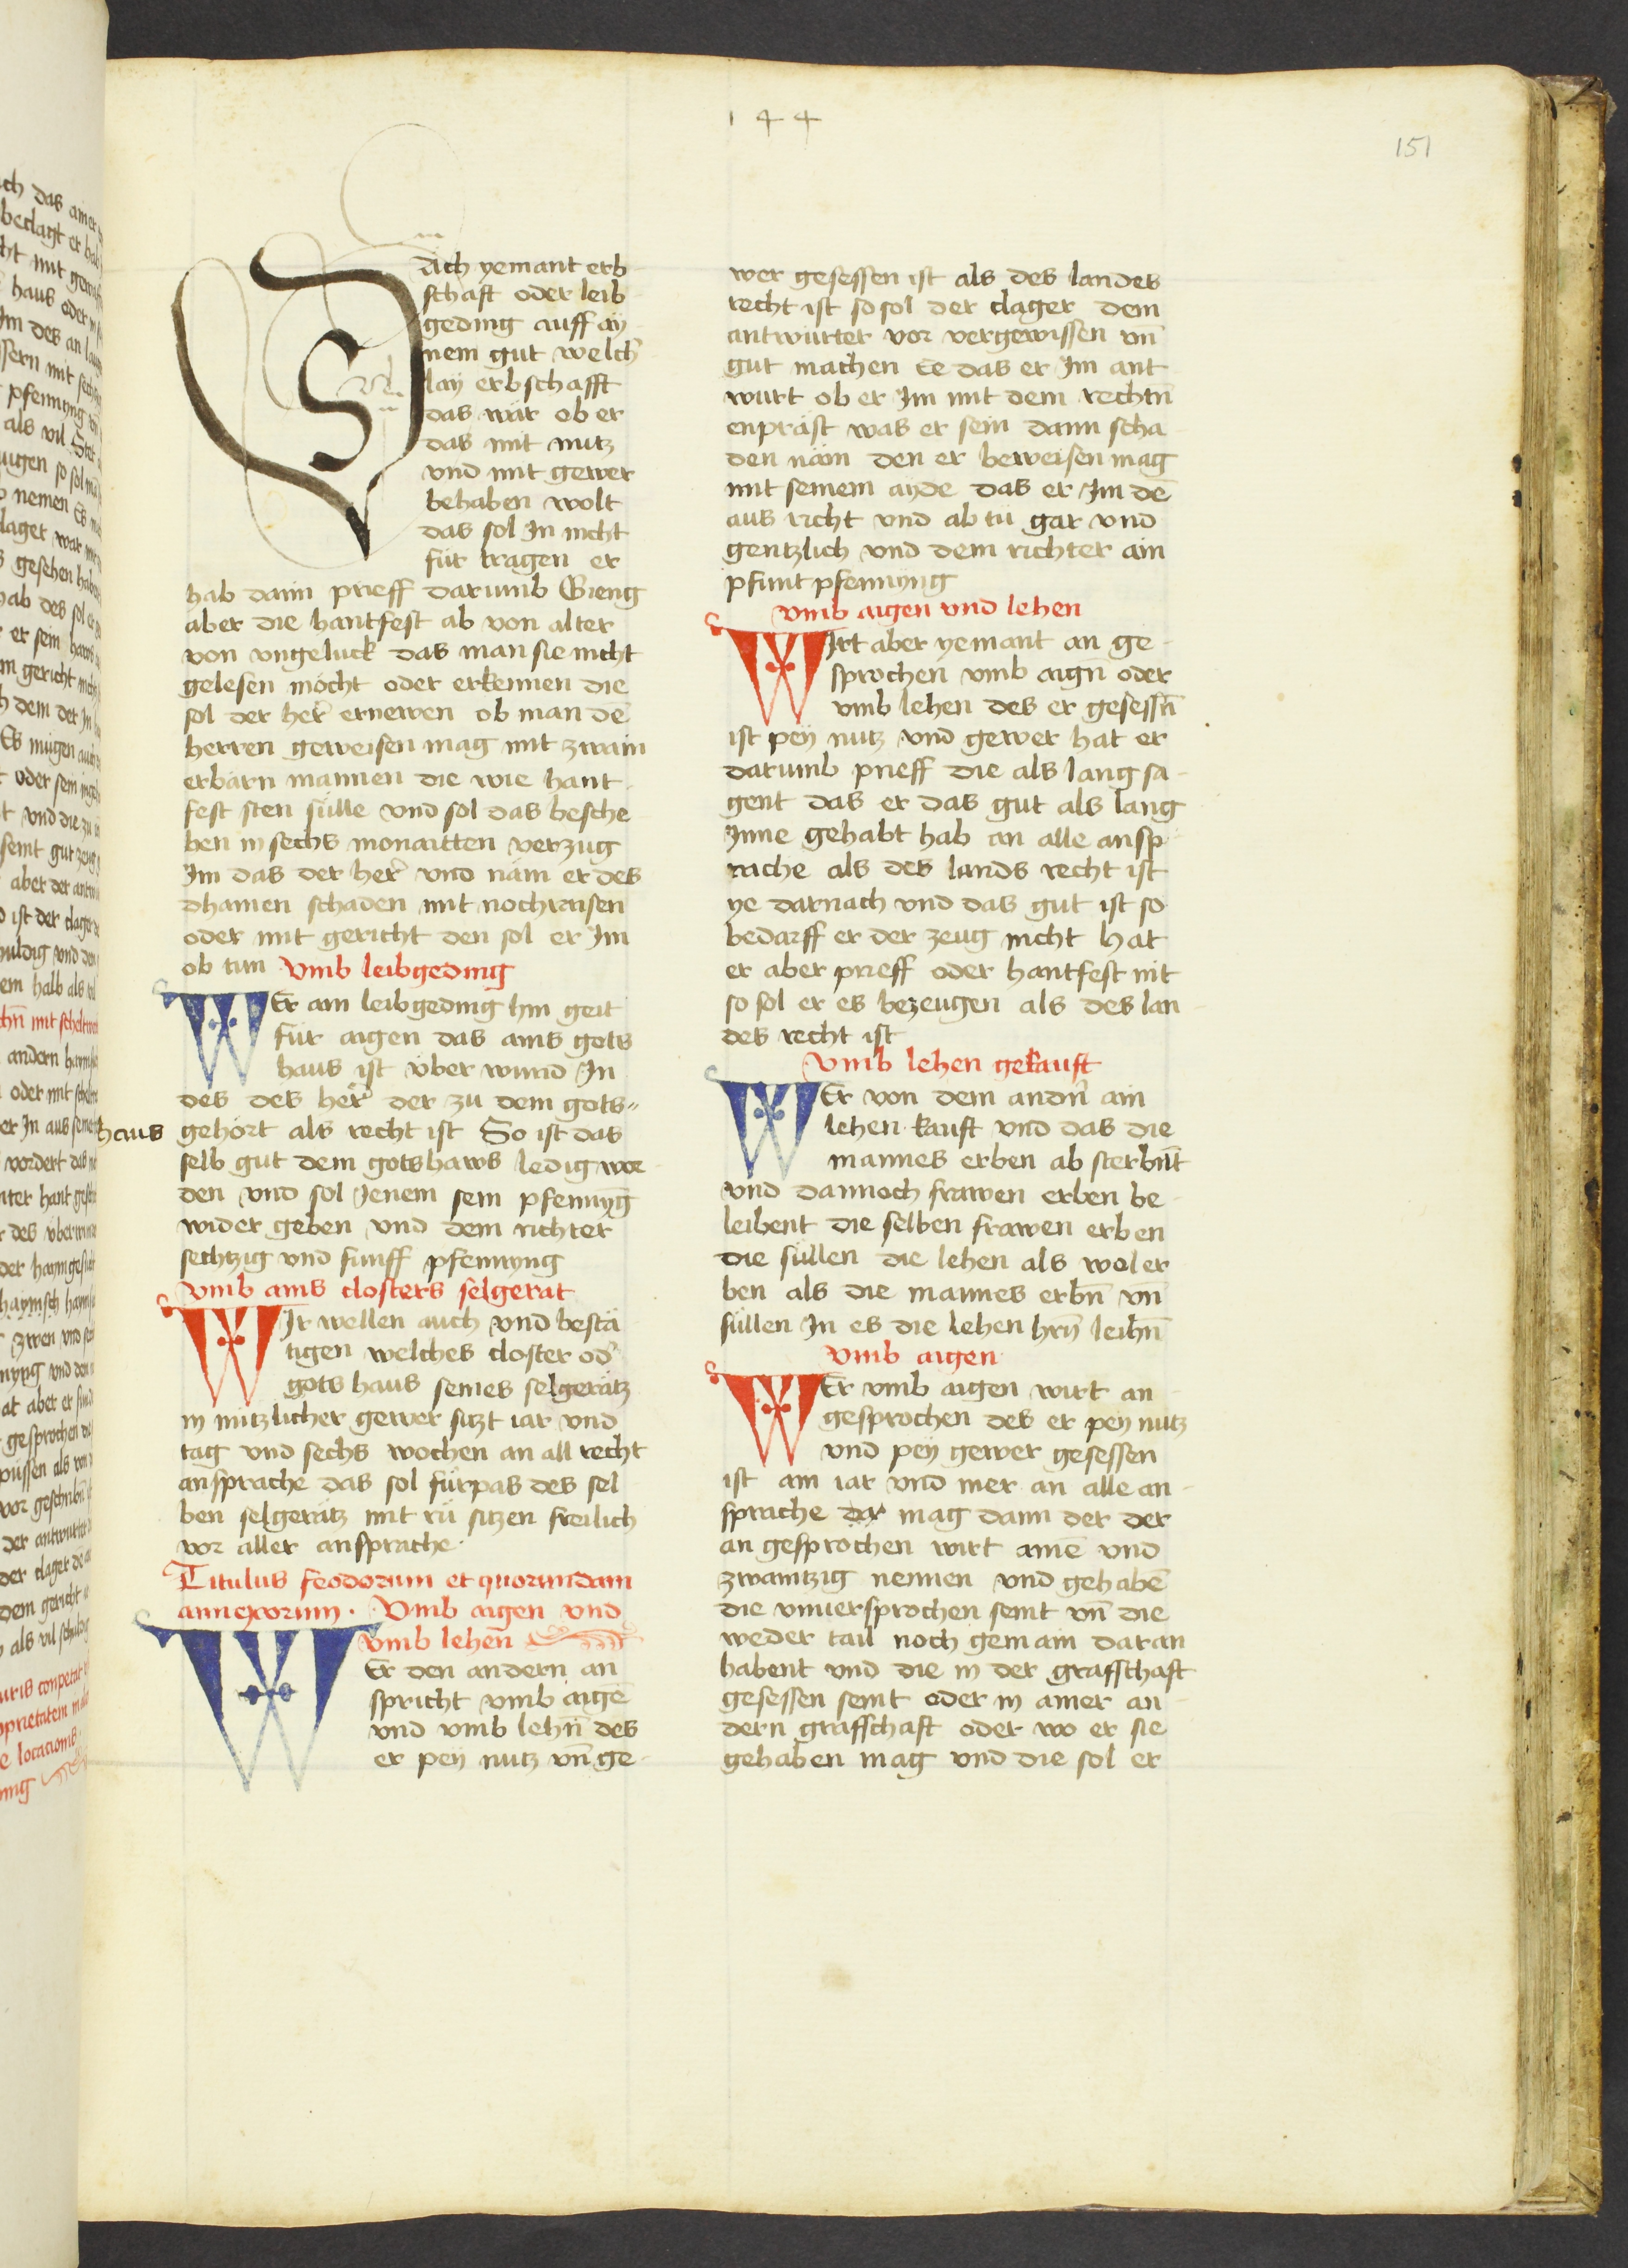 144
151
Säch yemant erb
schaft oder leib
geding auff ay
nem gut welch̾
lay erbschafft
das wär ob er
das mit nutz
vnd mit gewer
behaben wolt
das sol In nicht
für tragen er
hab dann prieff darumb Gieng
aber die hantfest ab von alter
von vngeluck das man sie nicht
gelesen möcht oder erkennen die
sol der her̾ ernewen ob man dē
herren geweisen mag mit zwain
erbärn mannen die wie hant
fest sten sülle vnd sol das besche
hen in sechs monaitten verzug
Im das der her̾ vnd näm er des
dhainen schaden mit nochraisen
oder mit gericht den sol er Im
ob tun Vmb leibgeding
WEr ain leibgeding hin geit
für aigen das ains gots
haus ist vber wund In
des des her̾ der zu dem gots〃
haus gehört als recht ist So ist das
selb gut dem gotshaws ledig wor
den vnd sol Jenem sein pfennyg̅
wider geben vnd dem richter
sechtzig vnd funff pfennyng
vmb ains closters selgerat
WIr wellen auch vnd bestä
tigen welches closter od̾
gots haus seines selgerätz
in nutzlicher gewer sitzt iar vnd
tag vnd sechs wochen an all recht
ansprache das sol fürpas des sel
ben selgerätz mit rü sitzen freilich
vor aller ansprache.
Titulus feodorum et quorundam
annexorum. Vmb aigen vnd
vmb lehen
WEr den andern an
spricht vmb aigē
vnd vmb lehn̄ des
er pey nutz vn̄ ge
wer gesessen ist als des landes
recht ist so sol der clager dem
antwurter vor vergewissen vn̄
gut machen Ee das er Im ant
wurt ob er Im mit dem rechtn̄
enpräst was er sein dann scha
den näm den er beweisen mag
mit seinem ayde das er Im dē
aus richt vnd ab tü gar vnd
gentzlich vnd dem richter ain
pfunt pfennyng
vmb aigen vnd lehen
WIrt aber yemant an ge
sprochen vmb aign̄ oder
vmb lehen des er gesessn̄
ist pey nutz vnd gewer hat er
darumb prieff die als lang sa
gent das er das gut als lang
Inne gehabt hab an alle ansp
rache als des lands recht ist
ye darnach vnd das gut ist so
bedarff er der zeug nicht hat
er aber prieff oder hantfest nit
so sol er es bezeugen als des lan
des recht ist
vmb lehen gekauft
WEr von dem andn̄ ain
lehen kauft vnd das die
mannes erben ab sterbn̄t
vnd dannoch frawen erben be
leibent die selben frawen erben
die süllen die lehen als wol er
ben als die mannes erbn̄ vn̄
süllen In es die lehen hrn̄ leihn̄
vmb aigen
WEr vmb aigen wirt an
gesprochen des er pey nutz
vnd pey gewer gesessen
ist ain iar vnd mer an alle an
sprache der mag dann der der
an gesprochen wirt ainē vnd
zwaintzig nennen vnd gehabē
die vnuersprochen seint vn̄ die
weder tail noch gemain daran
habent vnd die in der graffschaft
gesessen seint oder in ainer an
dern graffschaft oder wo er sie
gehaben mag vnd die sol er